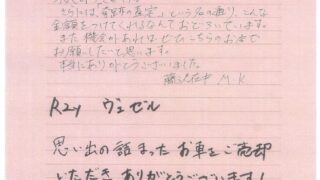 さすが「苗穂の査定」という名の通り、こんな
金額をつけてくれるなんておどろいています。
また機会があればぜひこちらのお店で
お願いしたいと思います。
本当にありがとうございました。
藤沢在中 M K
R2y ヴェゼル
思い出の詰まったお車をご売却
いただきありがとうございます!